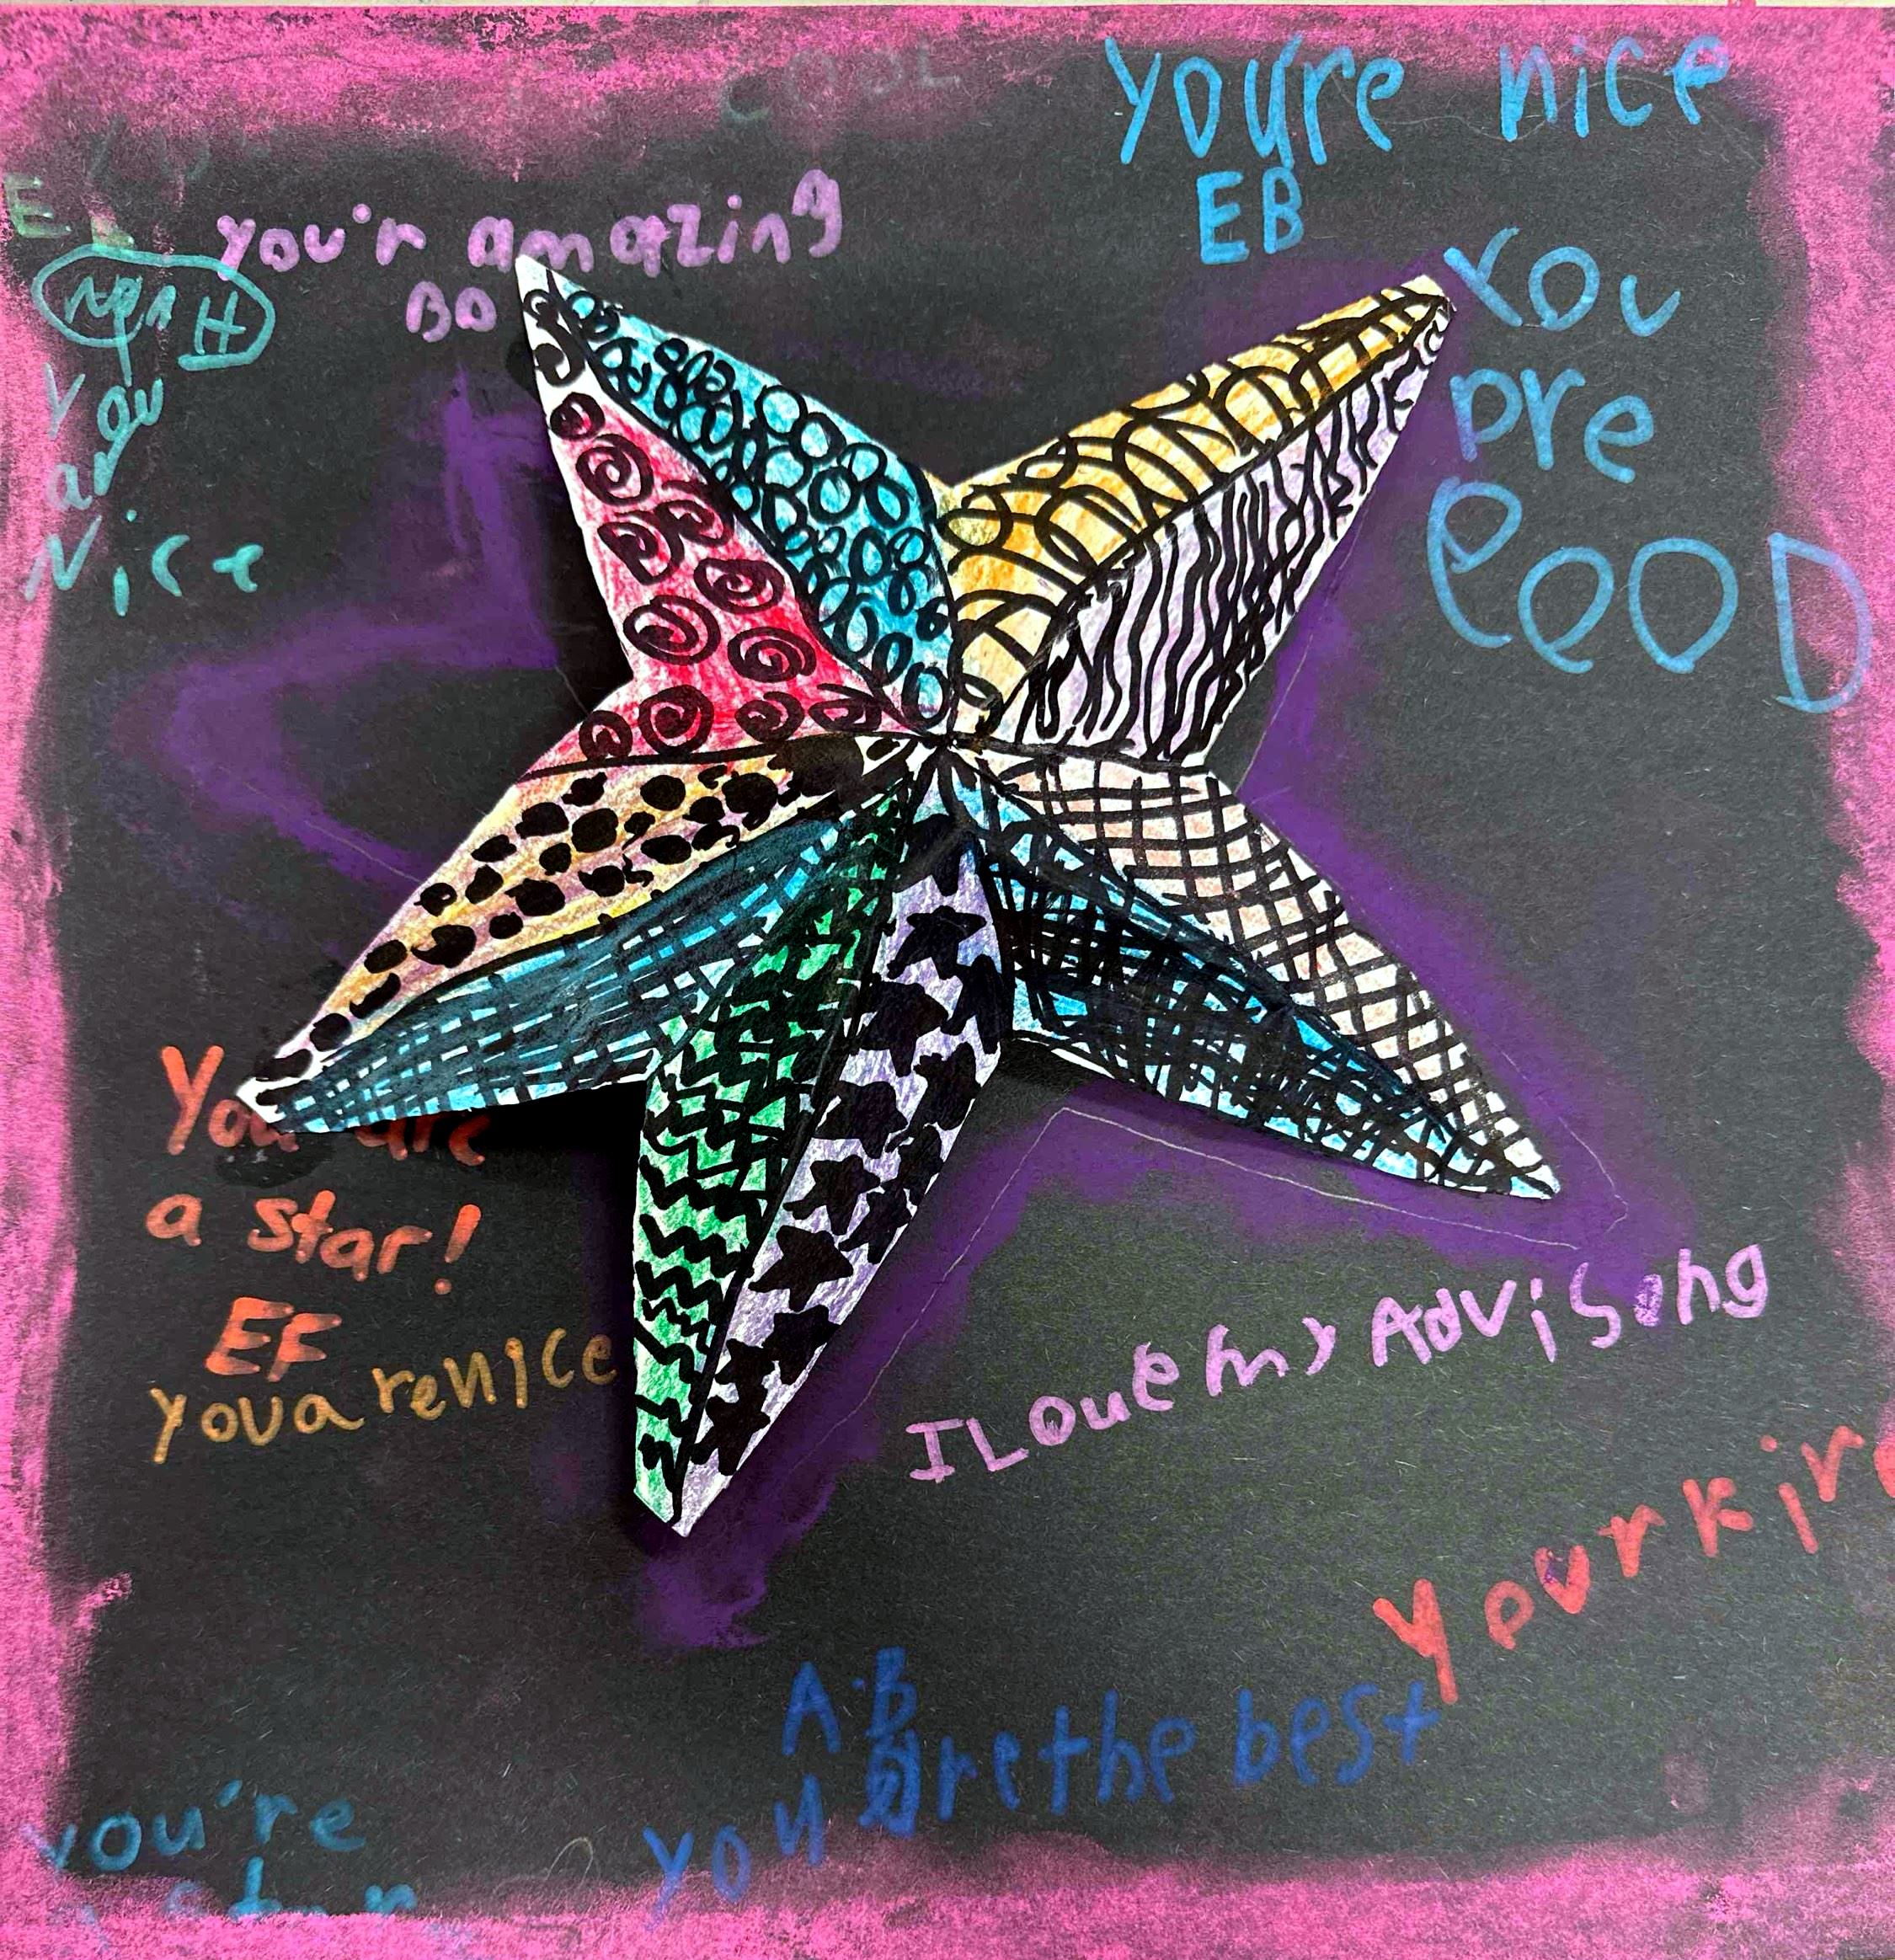 COOL
youre nice
EB
you'r amazing
BO
You
are
Nice
you
pre
eooD
You are
a star!
EF
you are nice
I Love my Advisong
your kin
A.B
you are the best
you're